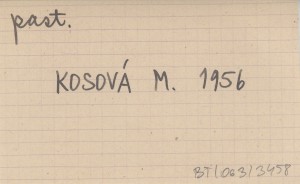 past.
KOSOVÁ M. 1956
BT/063/3458